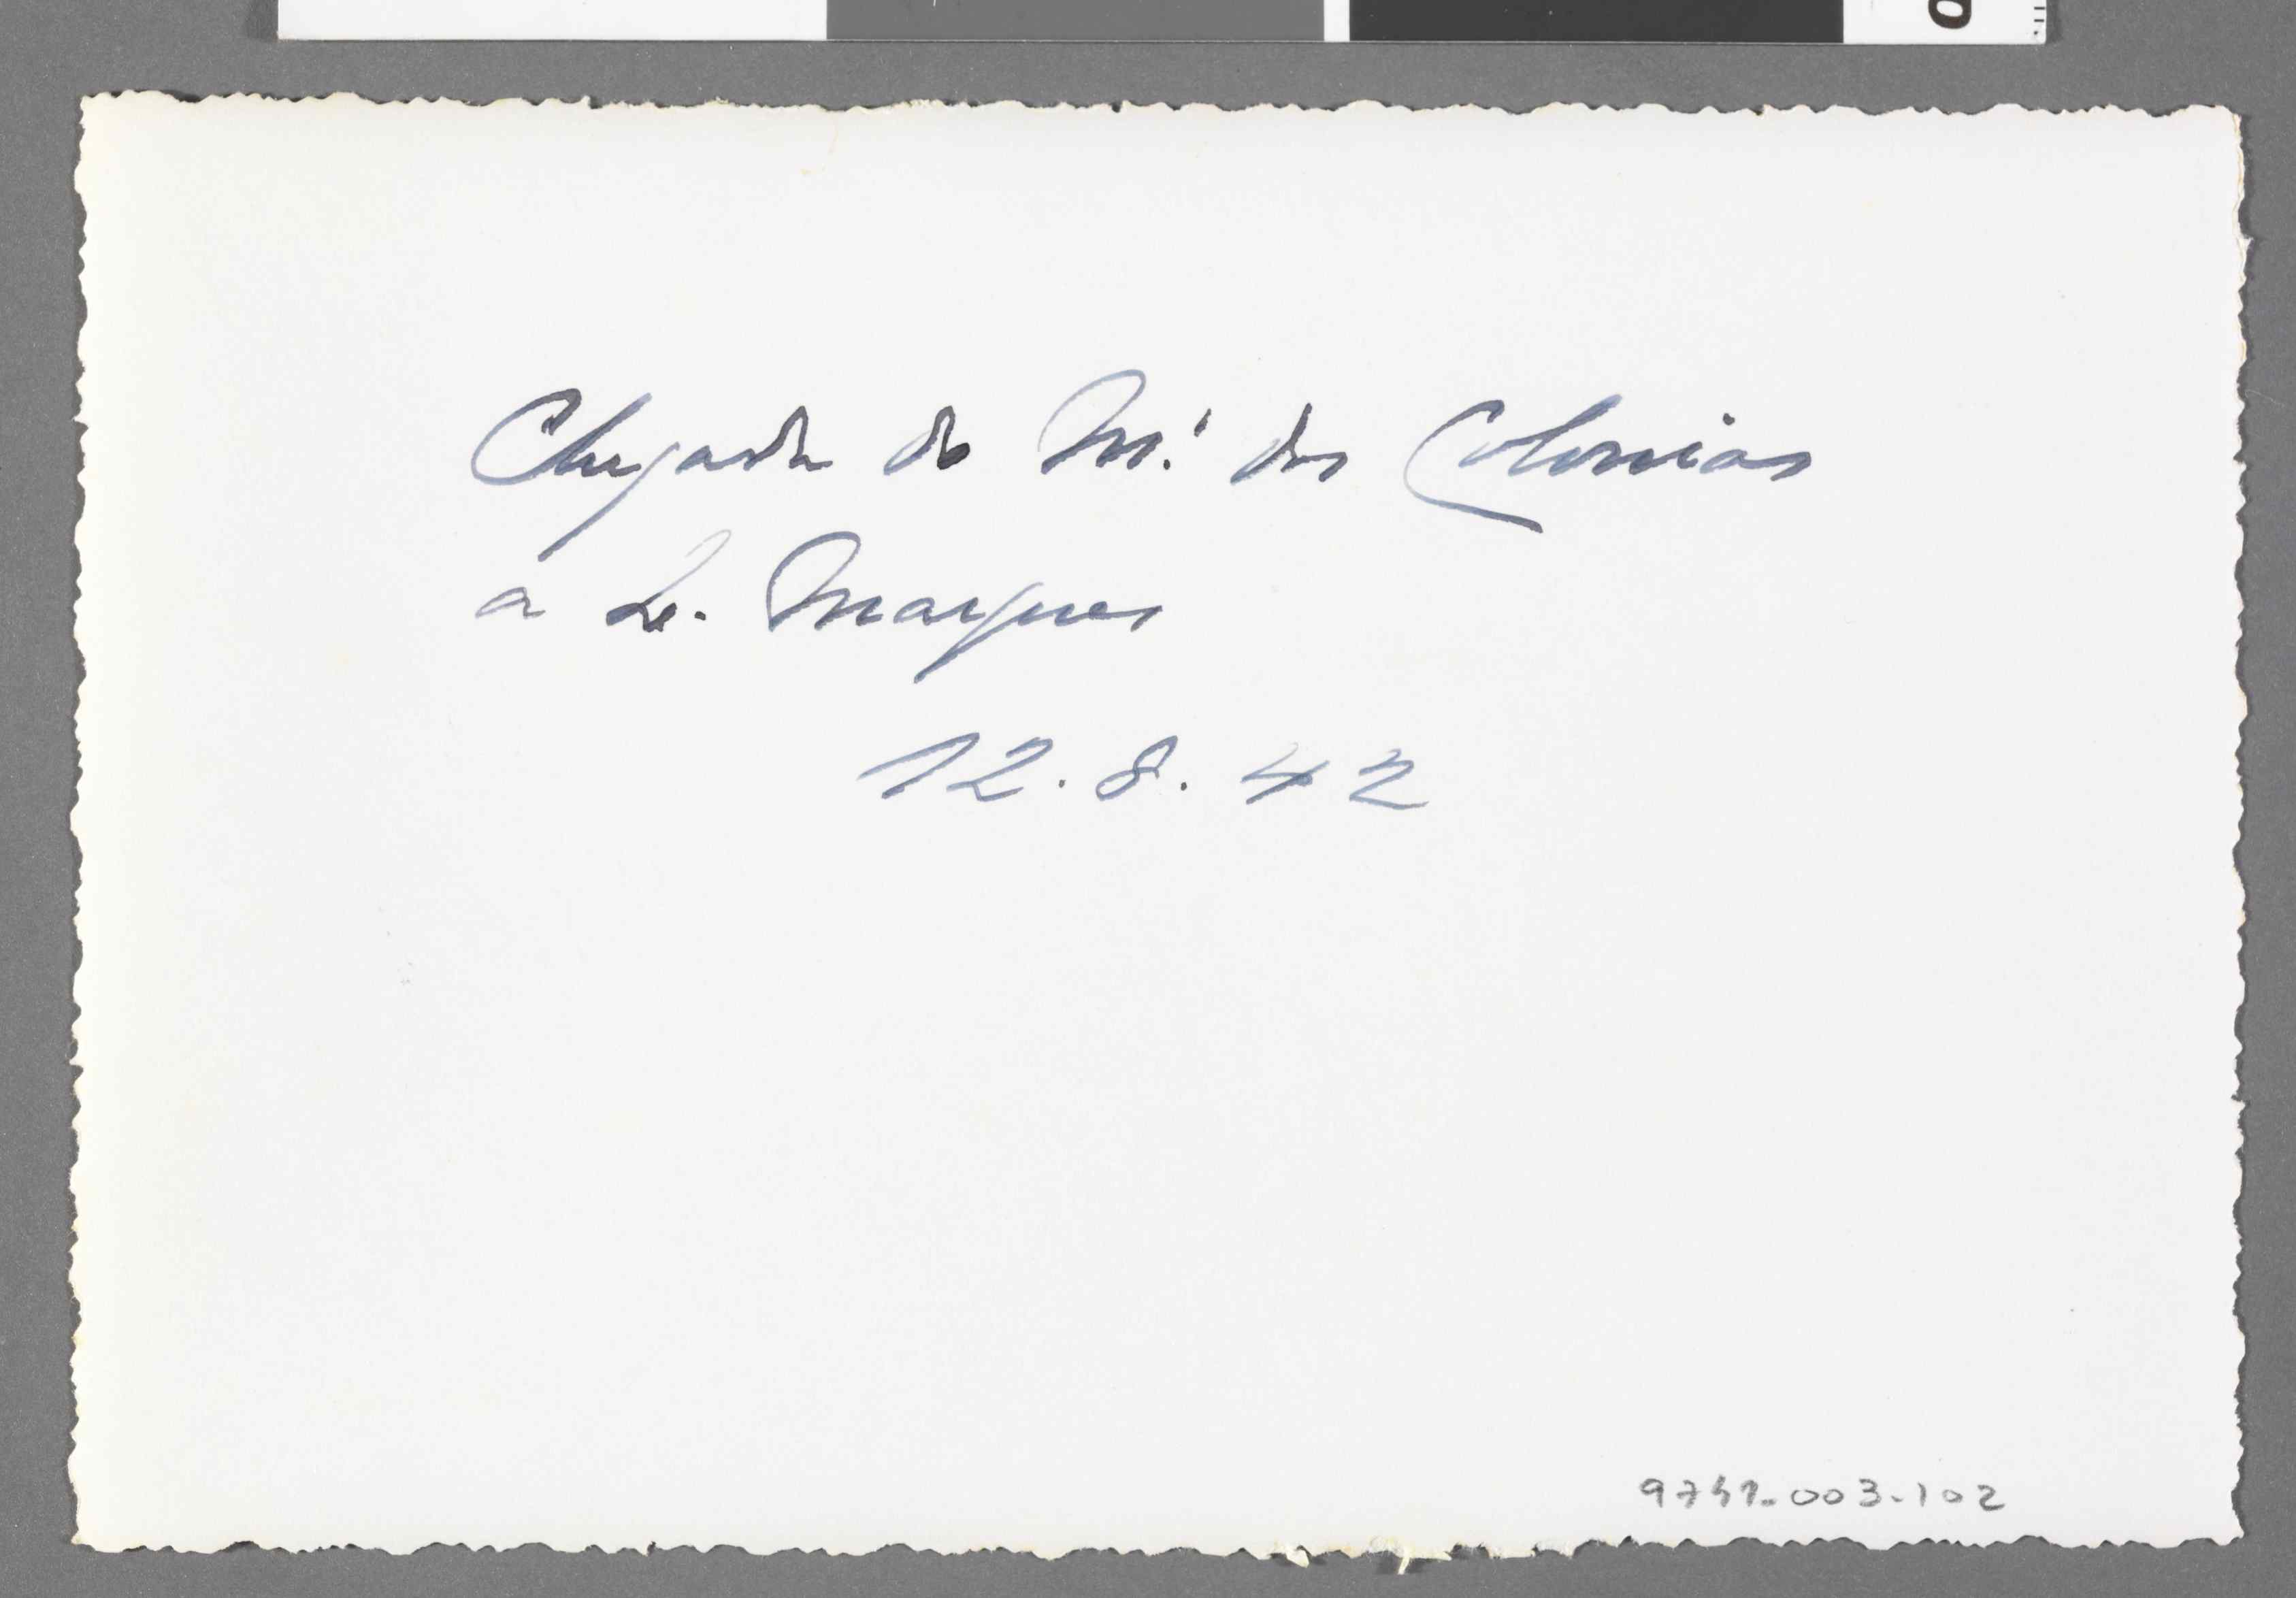 Chegada do M.' das Colonias
a L. Marques
12.8.42
003.102